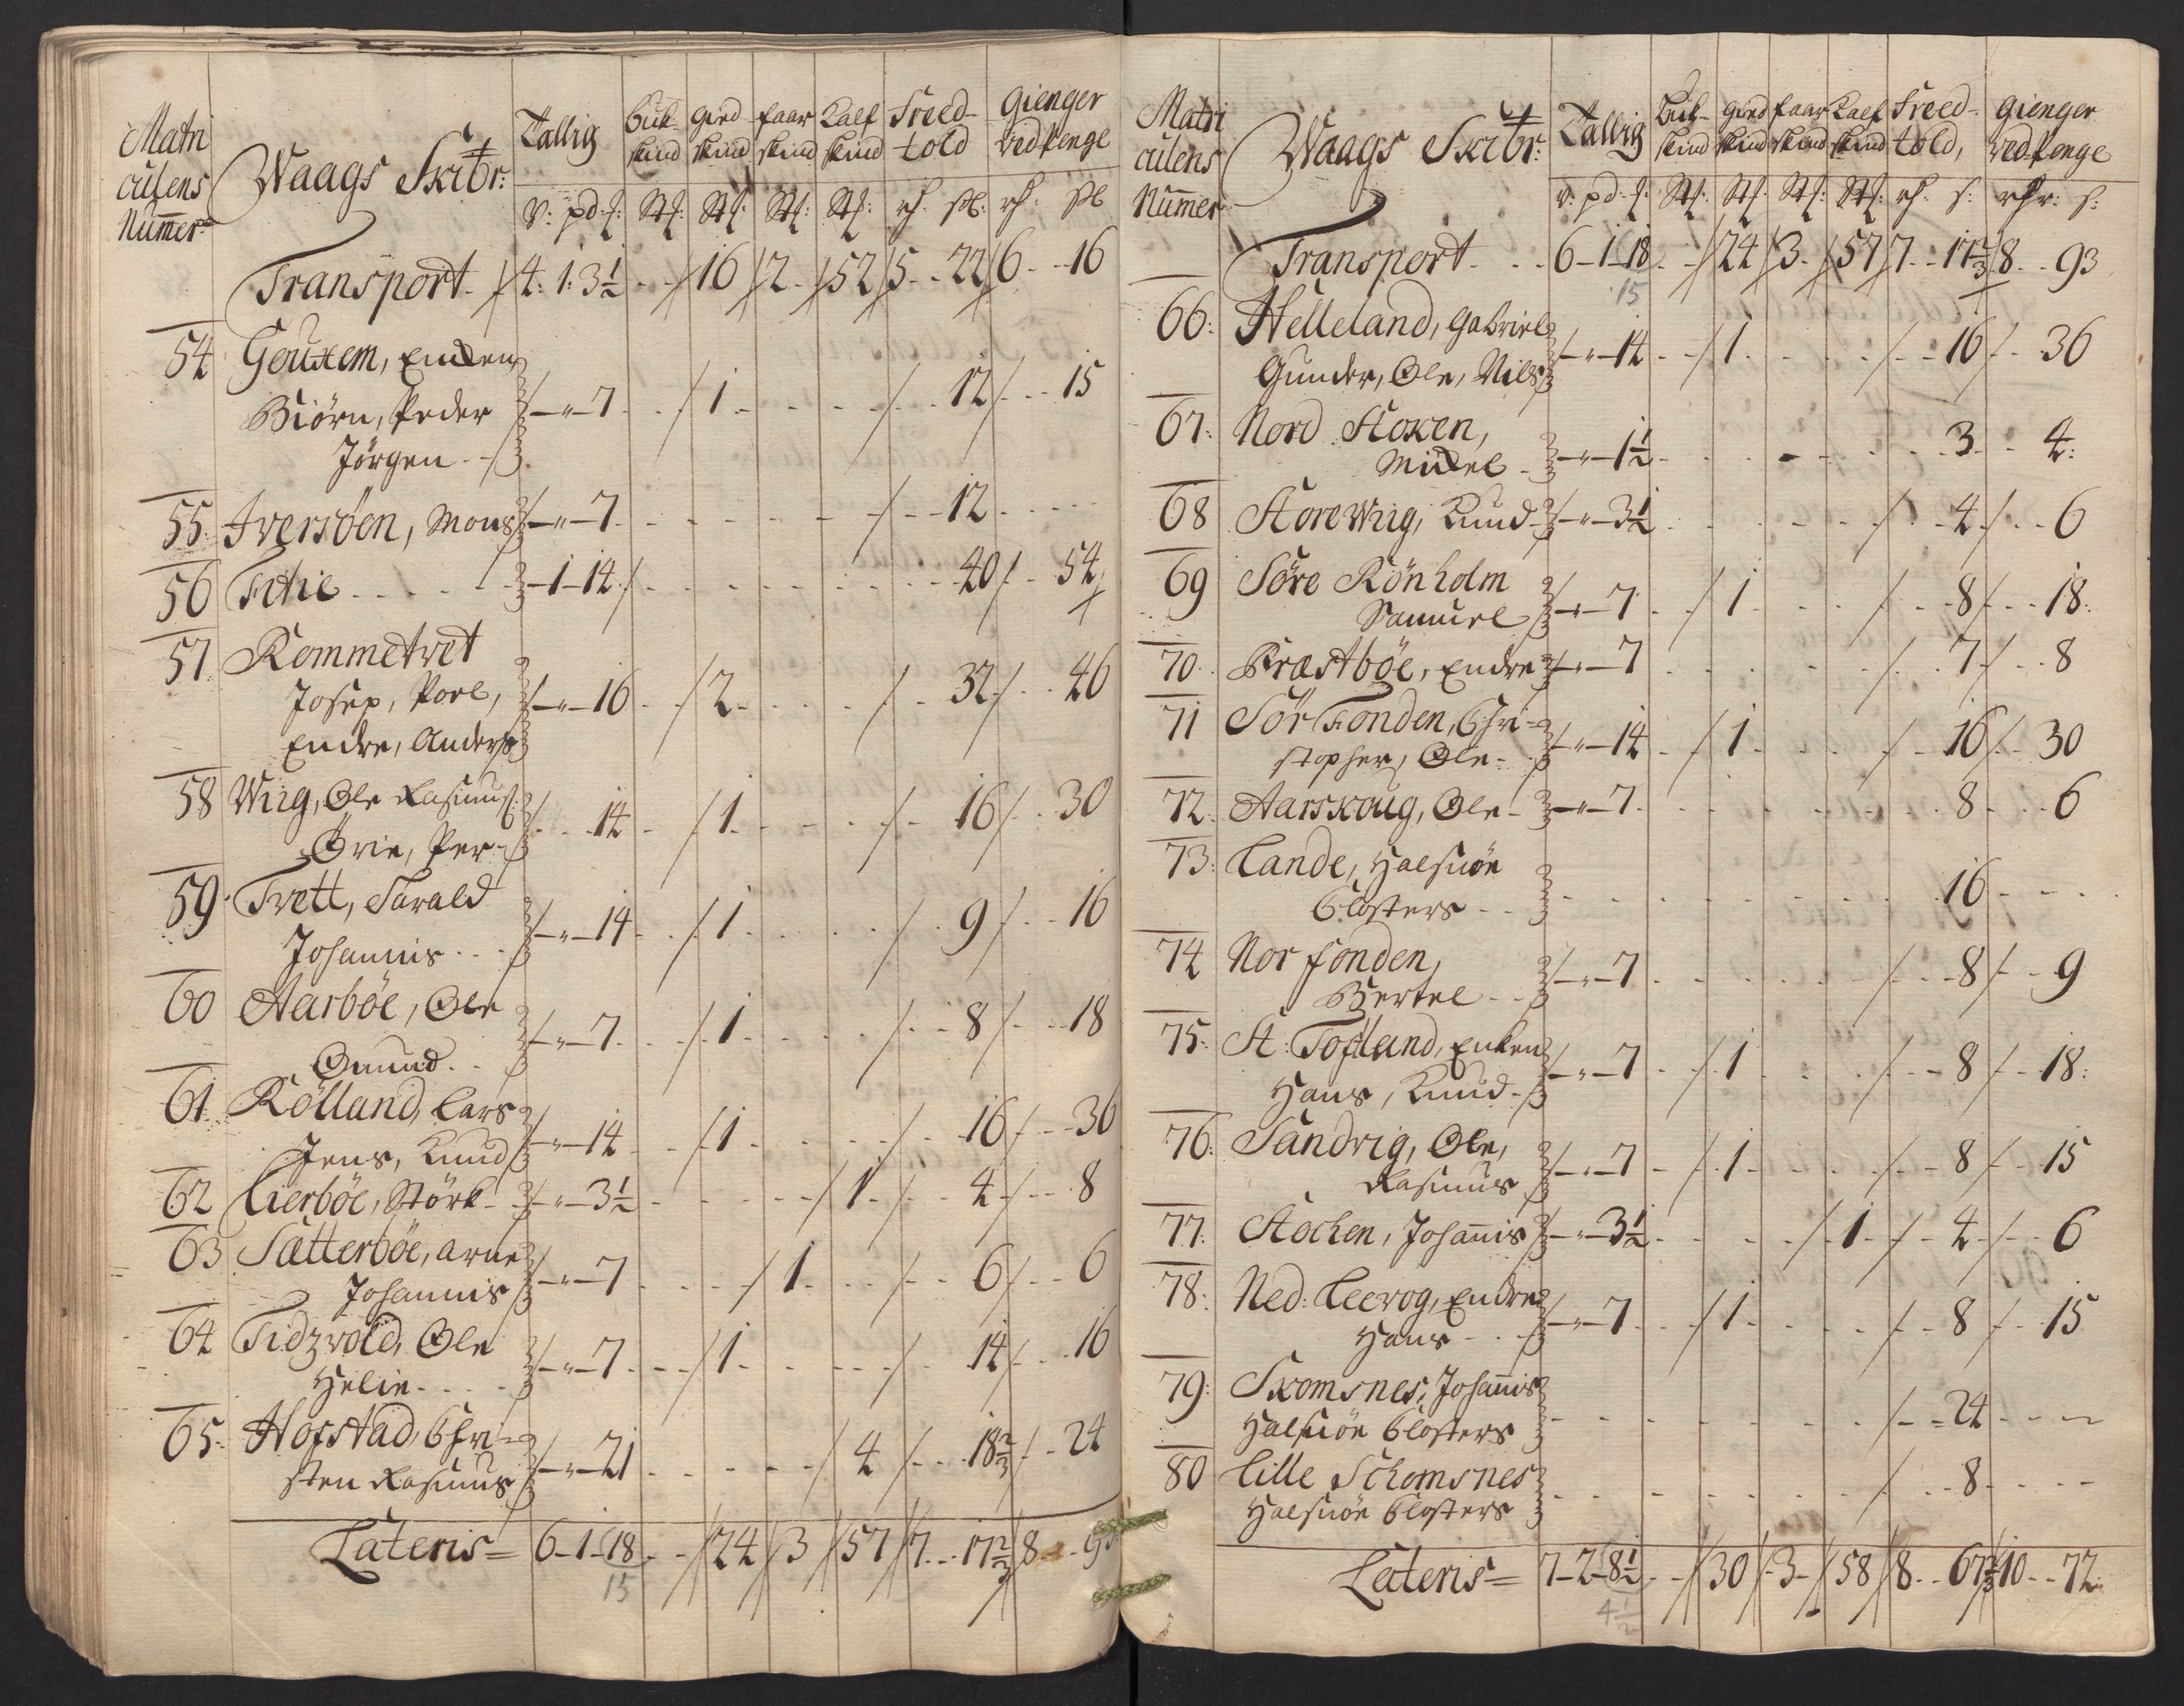 Matri
culens
Nummer
Waags Skibr:
Tallig
Buk
skind
Gied
skind
faar
skind
Kalf
skind
Freed-
told
Gienger
ved Penge
Transport 4. 1. 3½ 16 2 52 5 22 6 16
54 Gouxem, Enken
Biörn, Peder 7 1 12 15
Jörgen
55. Iversöen, Mons 7 12
56 Fetie 1 14 40 54
57 Kommetvet
Josep, Poel, 16 2 32 46
Endre, Anders
58 Wiig, Ole Rasmus
Övrie, Per 14 1 16 30
59. Tvett, Tarald
Johannis 14 1 9 16
60 Aarböe, Ole
Omund 7 1 8 18
61. Kölland, Lars
Jens, Knud 14 1 16 36
62 Lierböe, Störk 3½ 1 4 8
63 Sætterböe, Arne
Johannis 7 1 6 6
64 Tidzvold, Ole
Helie 7 1 14 16
65. Hofstad, Chri-
sten Rasmus 21 4 18⅔ 24
Lateris= 6-1-18 24 3 57 7 17⅔ 8
15
Matri
culens
Nummer
Waags Skibr:
Tallig
Buk-
skind
Gied
skind
faar
skind
Kalf
skind
Freed-
told,
Gienger
ved Penge
Transport 6-1-18 24 3 57 7 17⅔ 8 93
15
66. Helleland, Gabriel
Gunder, Ole, Nils 14 1 16 36
67. Nord Stoxen,
Mickel 1½ 3 4
68 Store Wiig, Knud 3½ 4 6
69 Söre Rönholm
Samuel 7 1 8 18
70. Præstböe, Endre 7 7 8
71 Sör Fonden, Chri-
stopher, Ole 14 1 16 30
72. Aarskoug, Ole 7 8 6
73: Lande, Halsnöe
Closters 16
74 Nor fonden,
Bertel 7 8 9
75. St: Tofland, Enken
Hans, Knud 7 1 8 18
76. Sandvig, Ole,
Rasmus 7 1 8 15
77. Stochen, Johannis 3½ 1 4 6
78. Ned: Leervog, Endre
Hans 7 1 8 15
79. Skomsnes, Johannis
Halsnöe Closters 24
80 Lille Schomsnes
Halsnöe Closters 8
Lateris= 7-2-8½ 30 3 58 8 67⅔ 10 72
4½